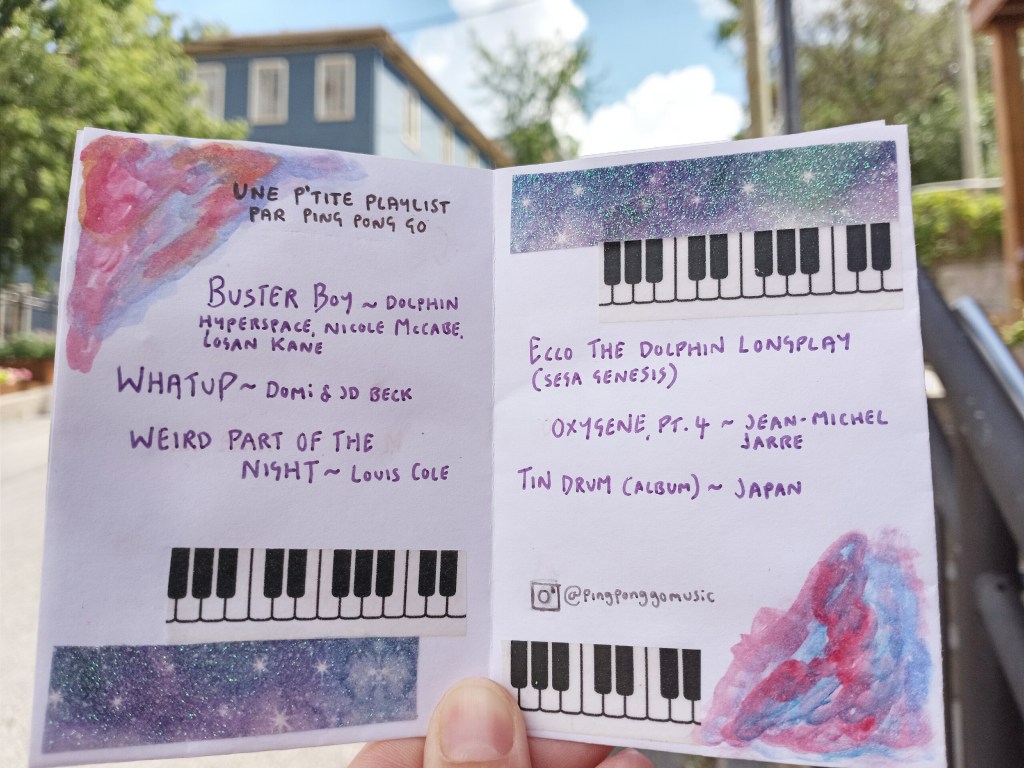 UNE P'TITE PLAYLIST
PAR PING PONG GO
BUSTER BOY ~ DOLPHIN
HYPERSPACE, NICOLE McCABE,
LOGAN KANE
WHATUP ~ DOMi & JD BECK
WEIRD PART OF THE
NIGHT ~ LOUIS COLE
ECCO THE DOLPHIN LONGPLAY
(SEGA GENESIS)
OXYGENE, PT. 4 ~ JEAN-MICHEL
JARRE
TIN DRUM (ALBUM) ~ JAPAN
@pingponggomusic